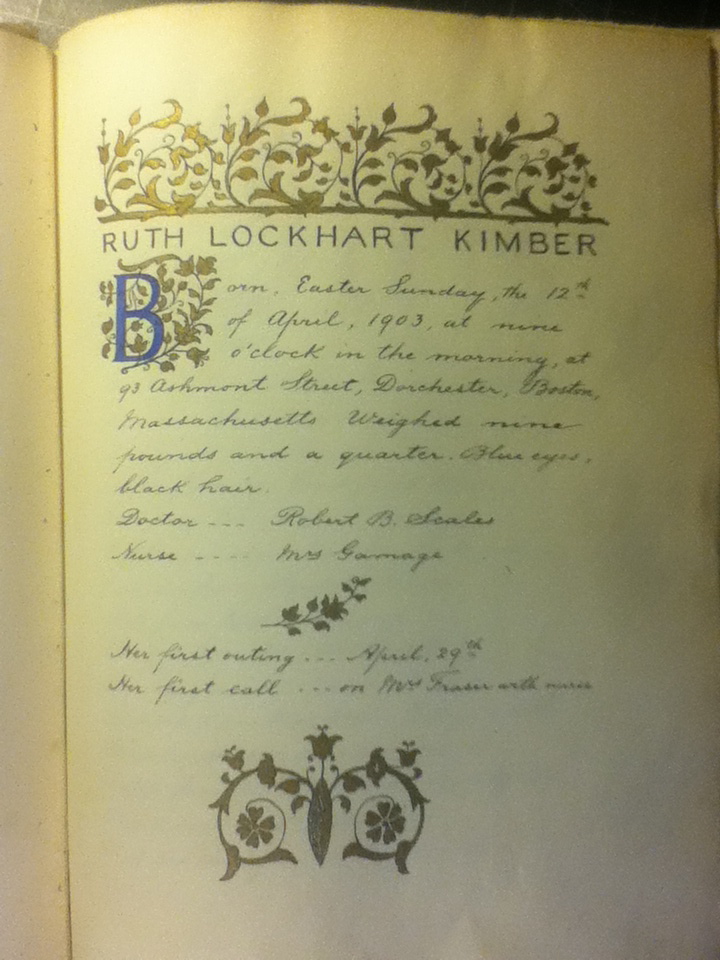 RUTH LOCKHART KIMBER
Born, Easter Sunday, the 12th
of April, 1903, at nine
o'clock in the morning, at
93 Ashmont Street, Dorchester, Boston,
Massachusetts Weighed nine
pounds and a quarter. Blue eyes,
black hair.
Doctor --- Robert B. Scales
Nurse ---- Mrs Gamage
Her first outing --- April, 29th
Her first call --- on Mrs Fraser with nurse